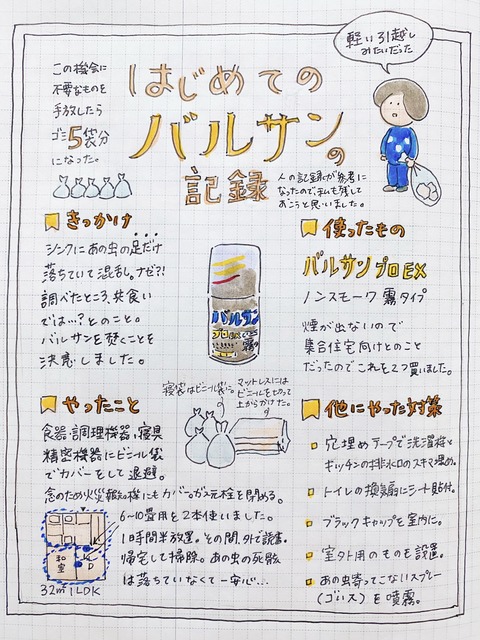 軽い引越し
みたいだった
この機会に
不要なものを
手放したら
ゴミ5袋分
になった。
はじめての
バルサンの
記録
人の記録が参考に
なったので私も残して
おこうと思いました。
きっかけ
シンクにあの虫の足だけ
落ちていて混乱。ナゼ?!
調べたところ、共食い
では…?とのこと。
バルサンを焚くことを
決意しました。
バルサン
プロEX
霧
使ったもの
バルサンプロEX
ノンスモーク霧タイプ
煙が出ないので
集合住宅向けとのこと
だったのでこれを2つ買いました。
やったこと
食器・調理機器、寝具
精密機器にビニール袋
でカバーをして退避。
念のため火災報知機にもカバー。ガス元栓を閉める。
寝袋はビニール袋に。
マットレスには
ビニールを切って
上からかけた。
6~10畳用を2本使いました。
1時間半放置。その間、外で読書。
帰宅して掃除。あの虫の死骸
は落ちていなくて一安心…
和室
K
D
32㎡1LDK
他にやった対策
穴埋めテープで洗濯機と
キッチンの排水口のスキマ埋め。
トイレの換気扇にシート貼付。
ブラックキャップを室内に。
室外用のものも設置。
あの虫寄ってこないスプレー
(ゴンス)を噴霧。